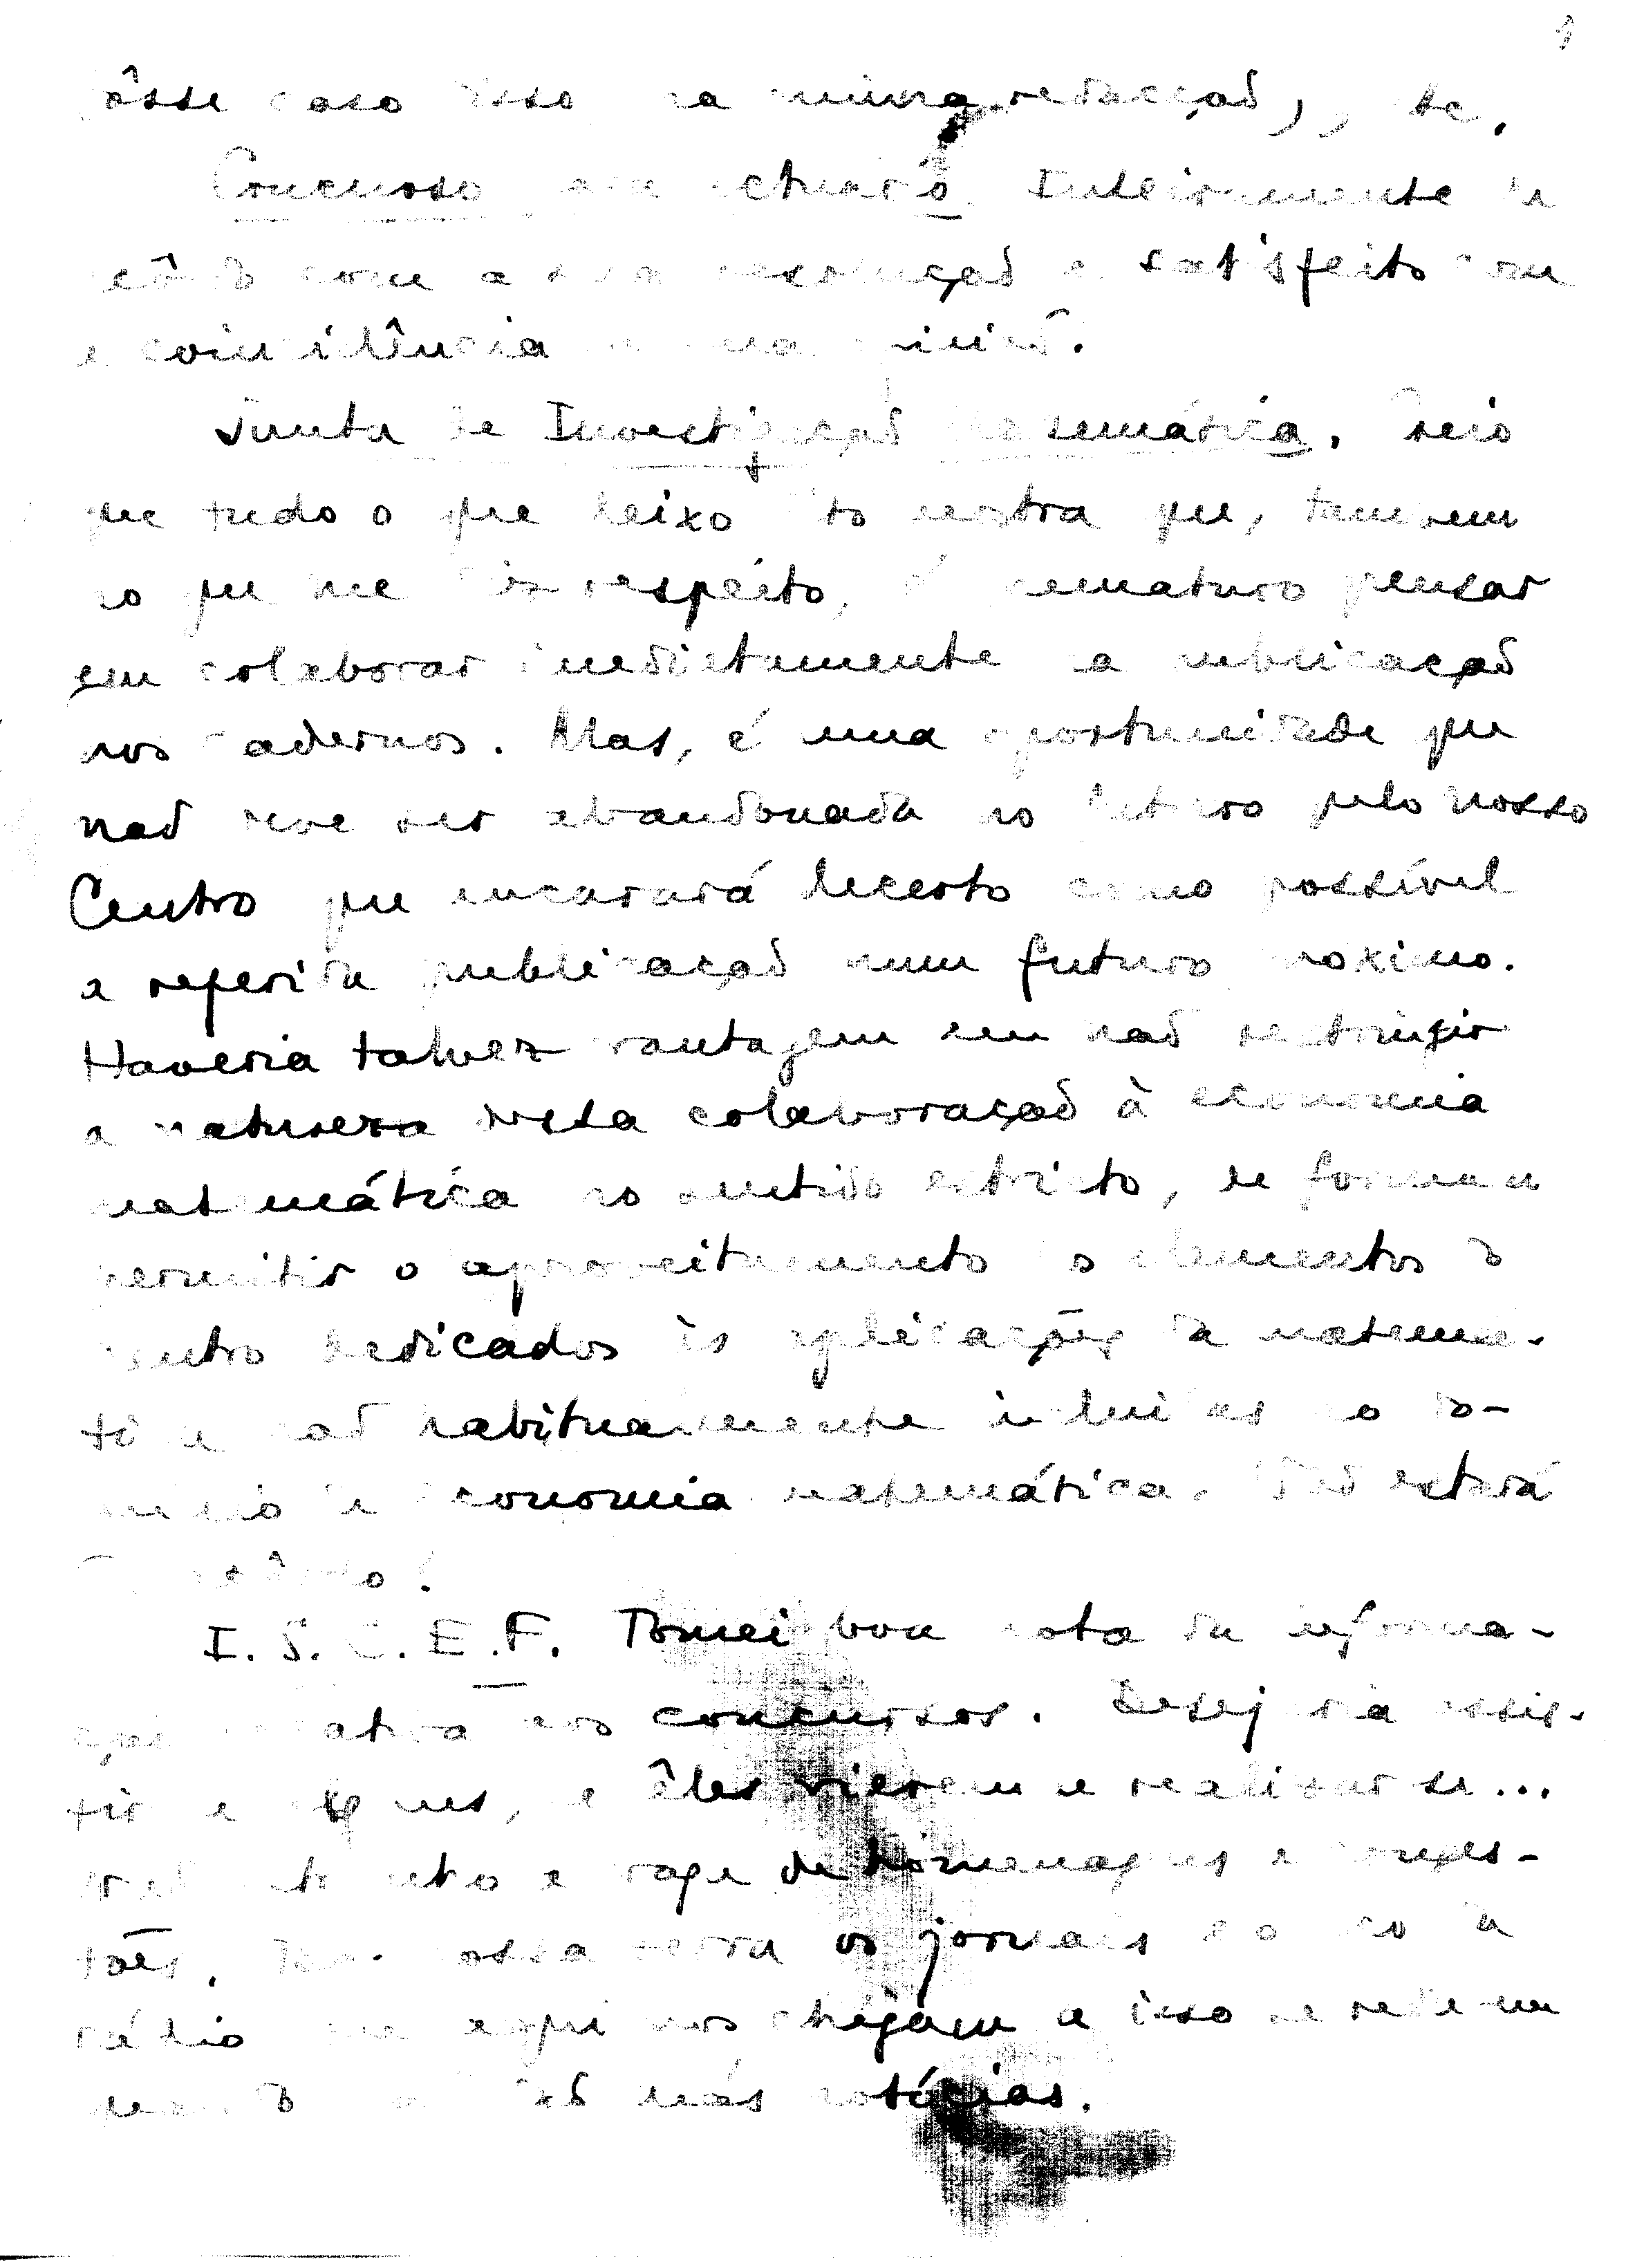 fôsse caso disso na minha redacção), etc.
Concurso para actuário. Inteiramente de
acôrdo com a sua resolução e satisfeito com
a coincidência de opinião.
Junta de Investigação Matemática. Creio
que tudo o que deixo dito mostra que, tambem
no que me diz respeito, é prematuro pensar
em colaborar imediatamente na publicação
nos cadernos. Mas, é uma oportunidade que
não deve ser abandonada no futuro pelo nosso
Centro que encarará decerto como possível
a referida publicação num futuro proximo.
Haveria talvez vantagem em não restringir
a natureza desta colaboração à economia
matemática no sentido estricto, de forma a
permitir o aproveitamento dos elementos do
Centro dedicados às aplicações da matemá-
tica não habitualmente incluidas no do-
minio da economia matemática. Não estará
de acôrdo?
I. S. C. E. F. Tomei boa nota da informa-
ção relativa aos concursos. Desejaria assis-
tir a alguns, se êles vierem a realizar-se...
entretanto a vaga de homenagens e
tões. Da nossa terra os jornais e o eco da
rádio que aqui nos chegam a isso se redu em
não más notícias.